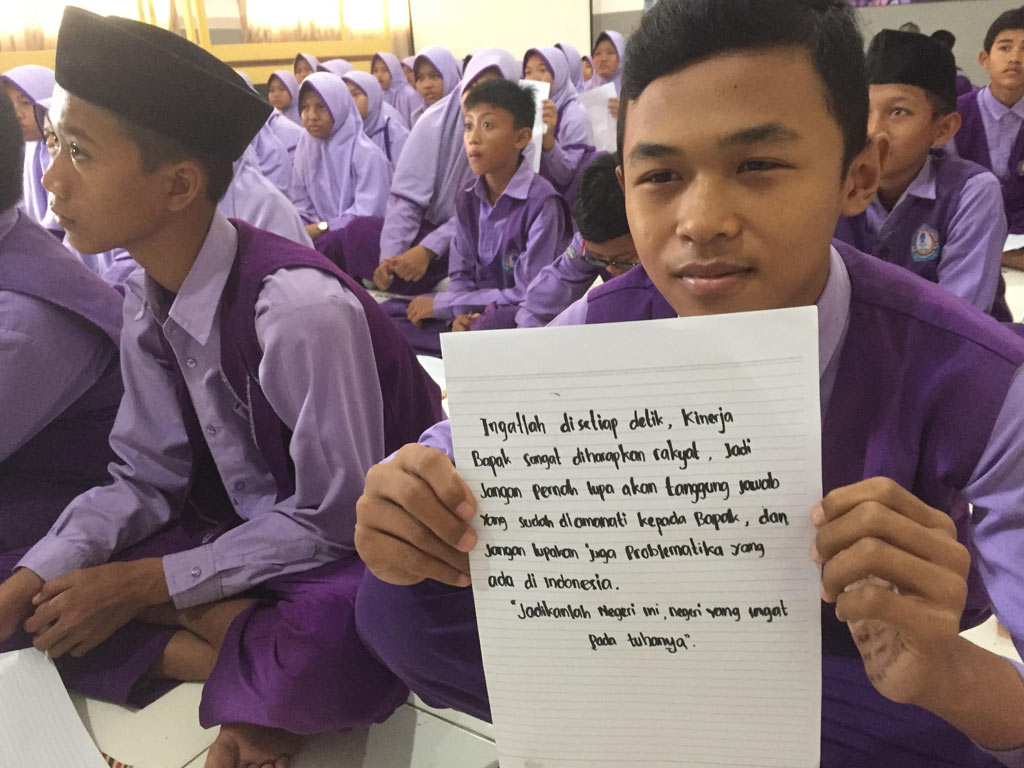 Ingatlah disetiap detik, Kinerja
Bapak sangat diharapkan rakyat, Jadi
Jangan Pernah lupa akan tanggung jawab
yang sudah diamanati kepada Bapak, dan
Jangan lupakan juga Problematika yang
ada di Indonesia.
"Jadikanlah Negeri ini, negeri yang ingat
pada tuhanya".